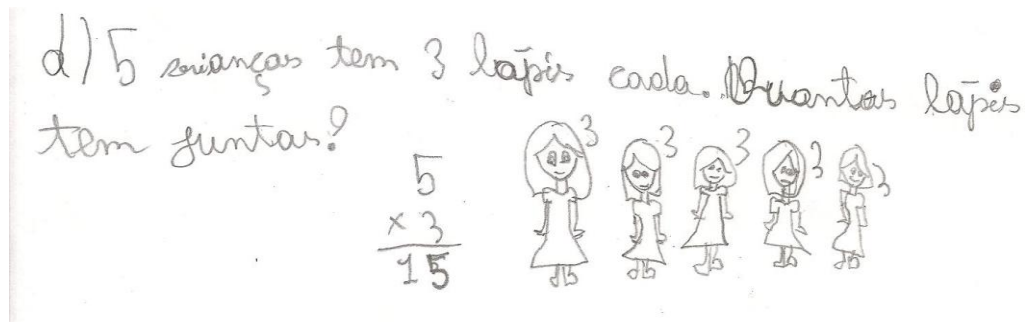 d) 5 crianças tem 3 lápis cada. Quantos lápis
tem juntas?
3 3 3 3 3
5
× 3
15